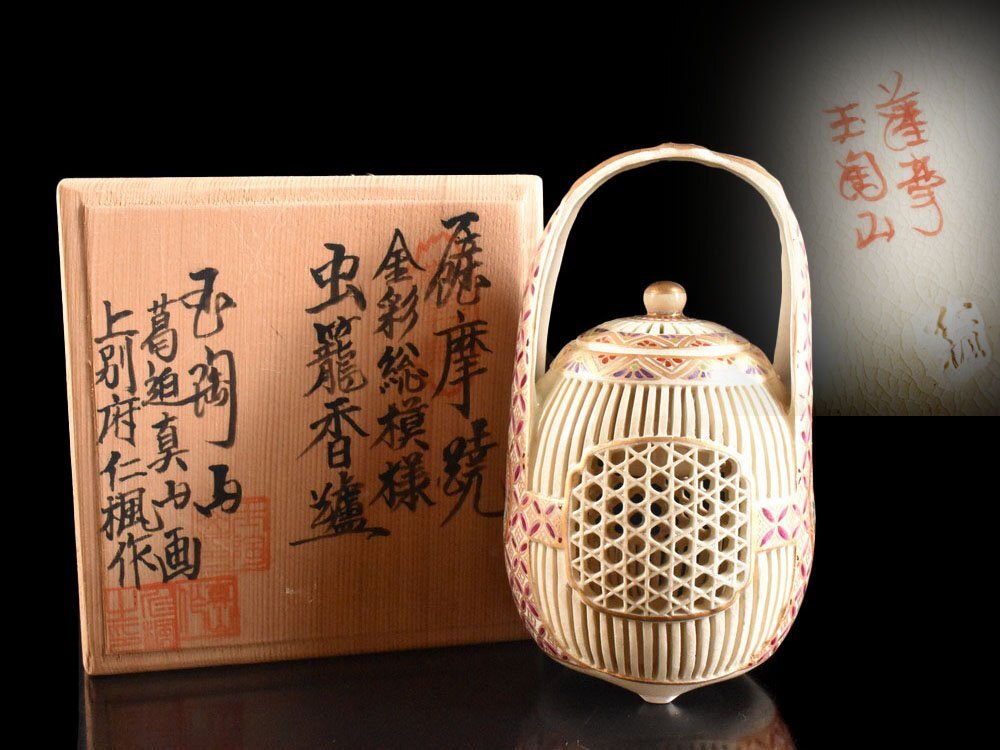 薩摩焼
金彩総模様
虫籠香爐
玉陶山
葛迫真山画
上別府仁楓作
玉陶山
仁楓